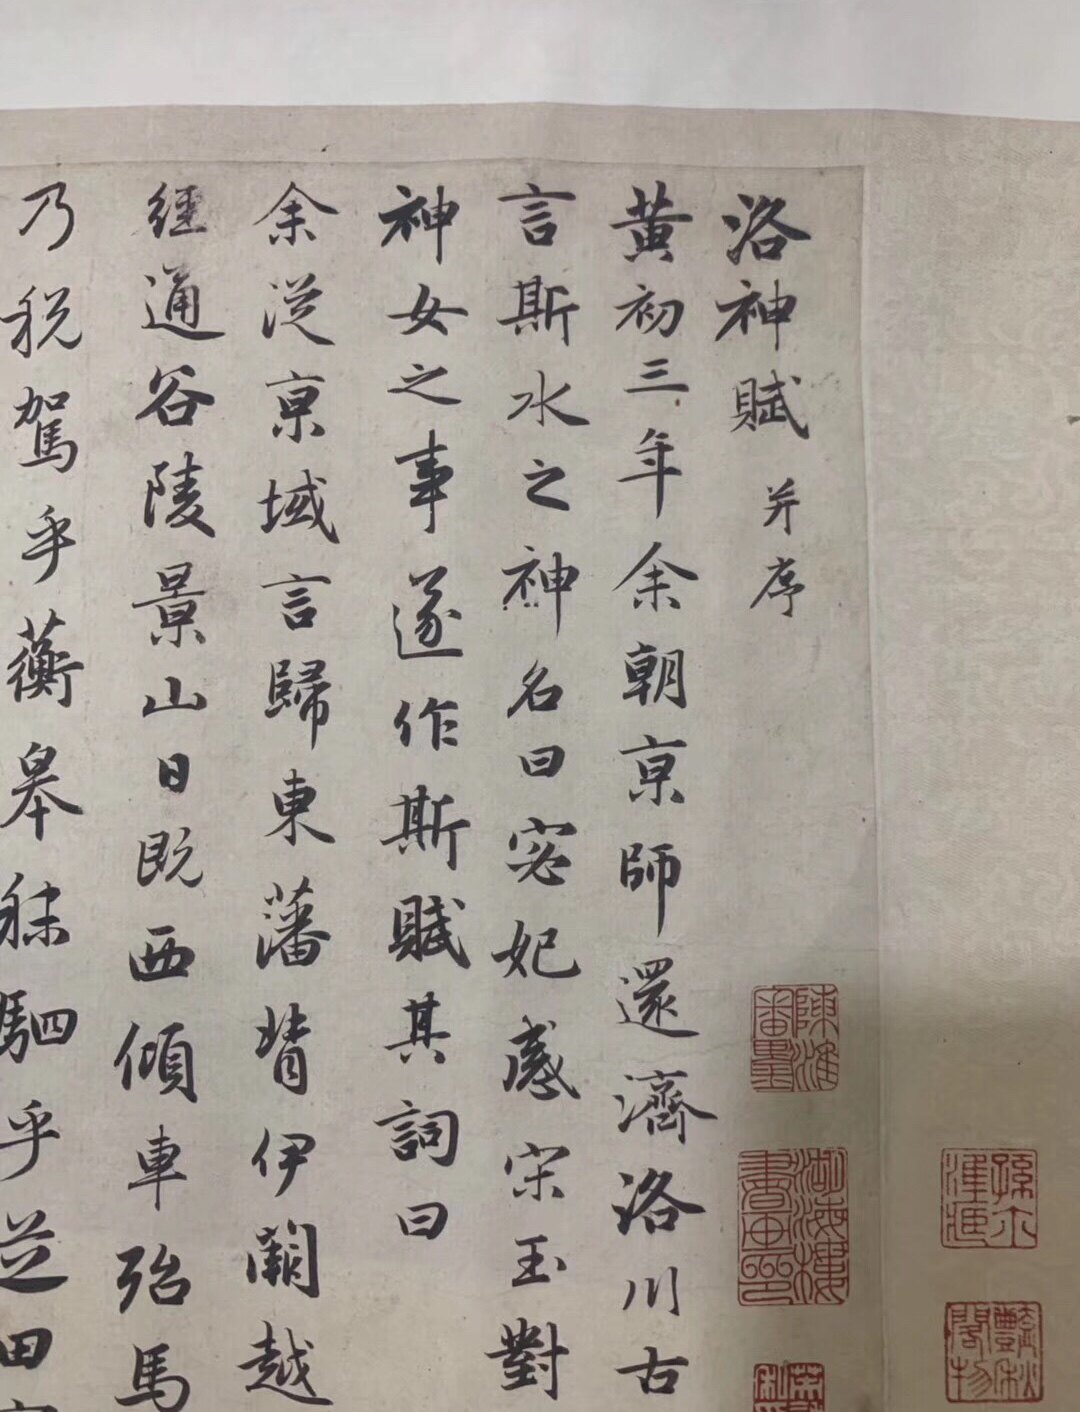 洛神賦并序
黄初三年余朝京師還濟洛川古
言斯水之神名曰宓妃感宋玉對
神女之事遂作斯賦其詞曰
余從京域言歸東藩背伊闕越
經通谷陵景山日既西傾車殆馬
乃税駕乎蘅皋秣駟乎芝田
陳淮
海樓
書畫印
孫